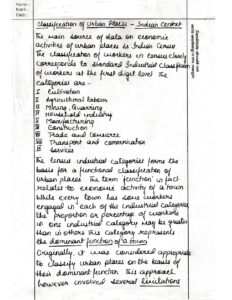 Name :
Batch :
Date :
Candidate should not write anything in this margin
Classification of Urban Places - Indian Context
The main source of data on economic
activity of urban places is Indian Census
The classification of workers in census closely
corresponds to standard Industrial Classification
of workers at the first digit level. The
categories are -
I Cultivation
II Agricultural labour
III Mining, Quarrying
IV Household industry
V Manufacturing
VI Construction
VII Trade and Commerce
VIII Transport and communication
IX Services
The census industrial categories forms the
basis for a functional classification of
urban places. The term function in fact
relates to economic activity of a town
While every town has some workers
engaged in each of the industrial categories
the proportion or percentage of workers
in one industrial category may be greater
than in others. This category represents
the dominant function of a town
Originally, it was considered appropriate
to classify urban places on the basis of
their dominant function. This approach
however involved several limitations